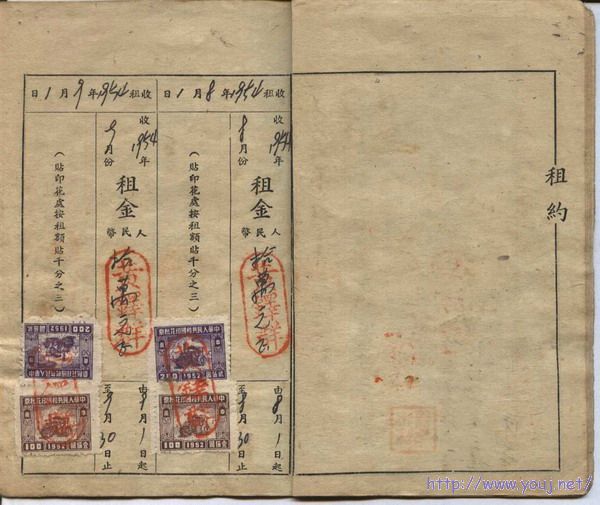 租約
收租1954年8月1日
收1954年8月份
租金
人民幣
拾萬元正
由8月1日起
至8月30日止
(貼印花處按租額貼千分之三)
中華人民共和國印花稅票
200 1952
中華人民共和國印花稅票
100 1952 壹佰圓
收租1954年9月1日
收1954年9月份
租金
人民幣
拾萬元正
由9月1日起
至9月30日止
(貼印花處按租額貼千分之三)
中華人民共和國印花稅票
200 1952
中華人民共和國印花稅票
100 1952 壹佰圓
http://www.youj.net/